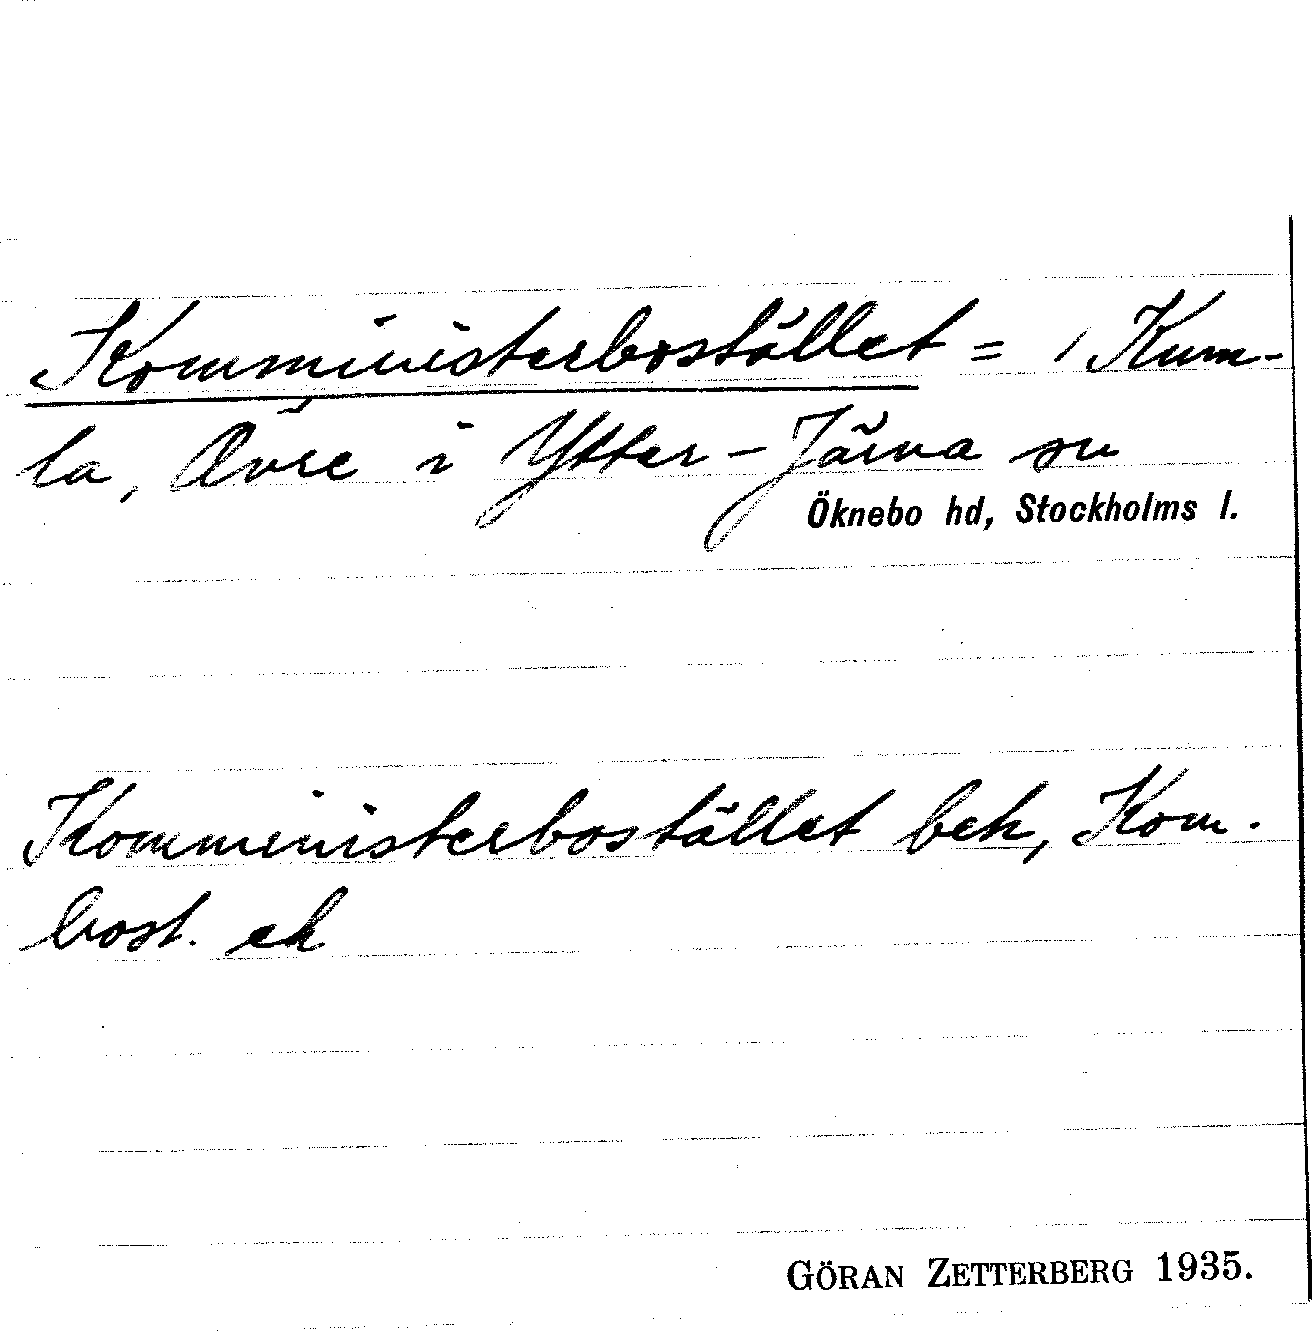 Komministerbostället = 1 Kum-
la, Övre i Ytter-Järna sn
Öknebo hd, Stockholms l.
Komministerbostället beh, Kom.
bost. ek
GÖRAN ZETTERBERG 1935.